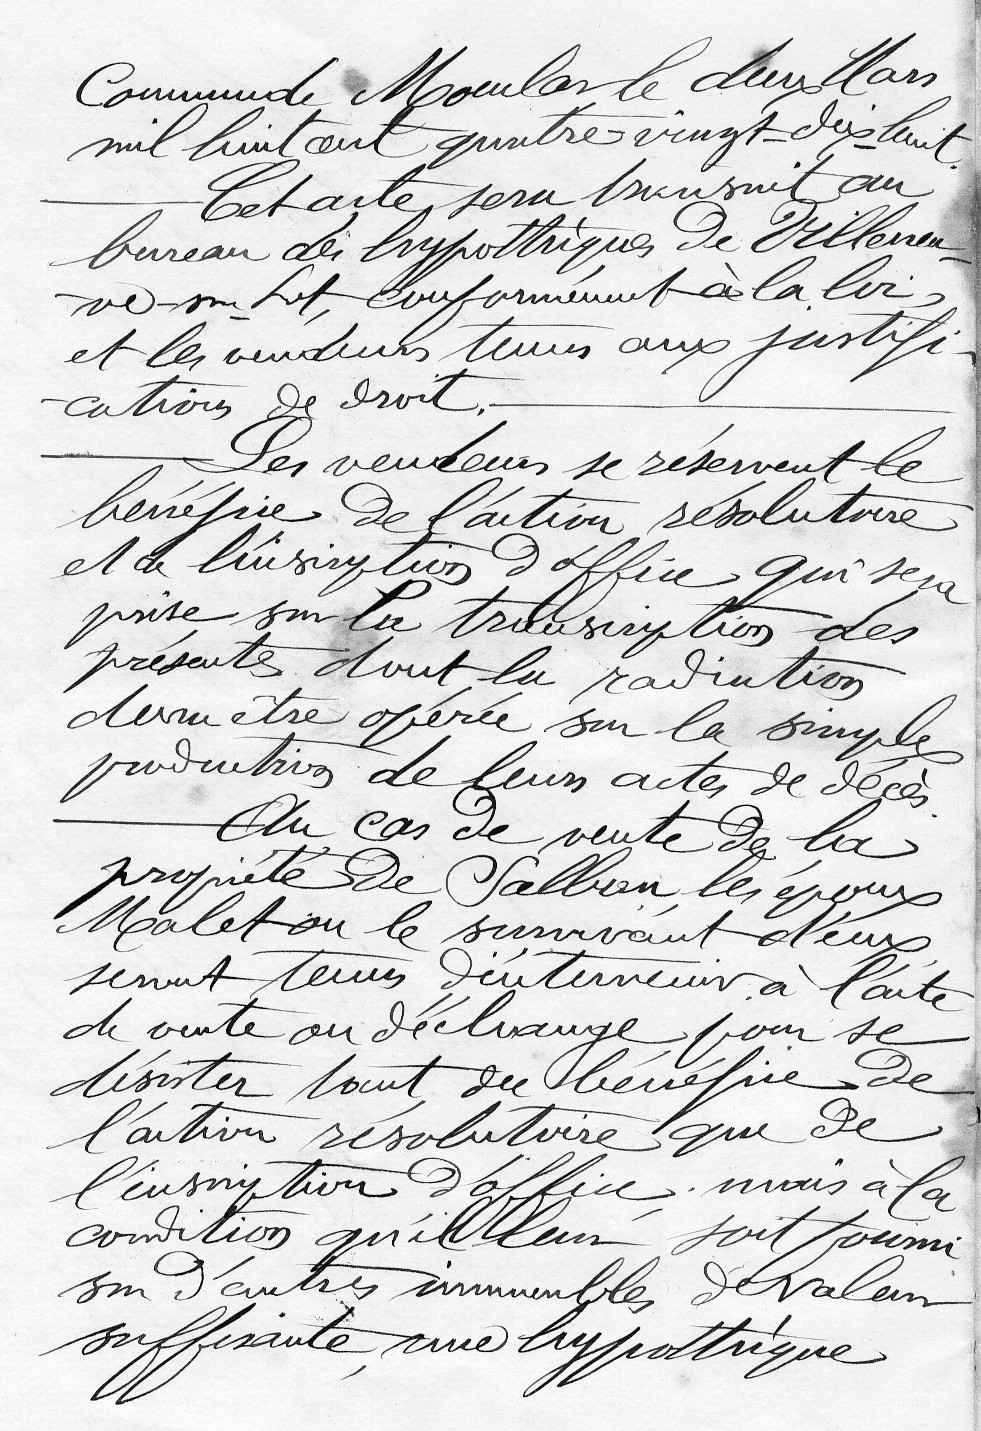 Commun de Moular le deux Mars
mil huit cent quatre-vingt-dix-huit.
Cet acte sera transmit au
bureau des hypothèques de Villeneu-
-ve-sur-Lot, conformément à la loi,
et les vendeurs tenus aux justifi-
-cations de droit.
Les vendeurs se réservent le
bénéfice de l'action résolutoire
et de l'inscription d'office qui sera
prise sur la transcription des
présentes dont la radiation
devra être opérée sur la simple
production de leurs actes de décès.
Au cas de vente de la
propriété de les époux
Malet ou le survivant d'eux,
seront tenus d'intervenir à l'acte
de vente ou d'échange pour se
désister tant du bénéfice de
l'action résolutoire que de
l'inscription d'office, mais à la
condition qu'il leur soit fourni
sur d'autres immeubles de valeur
suffisante, une hypothèque